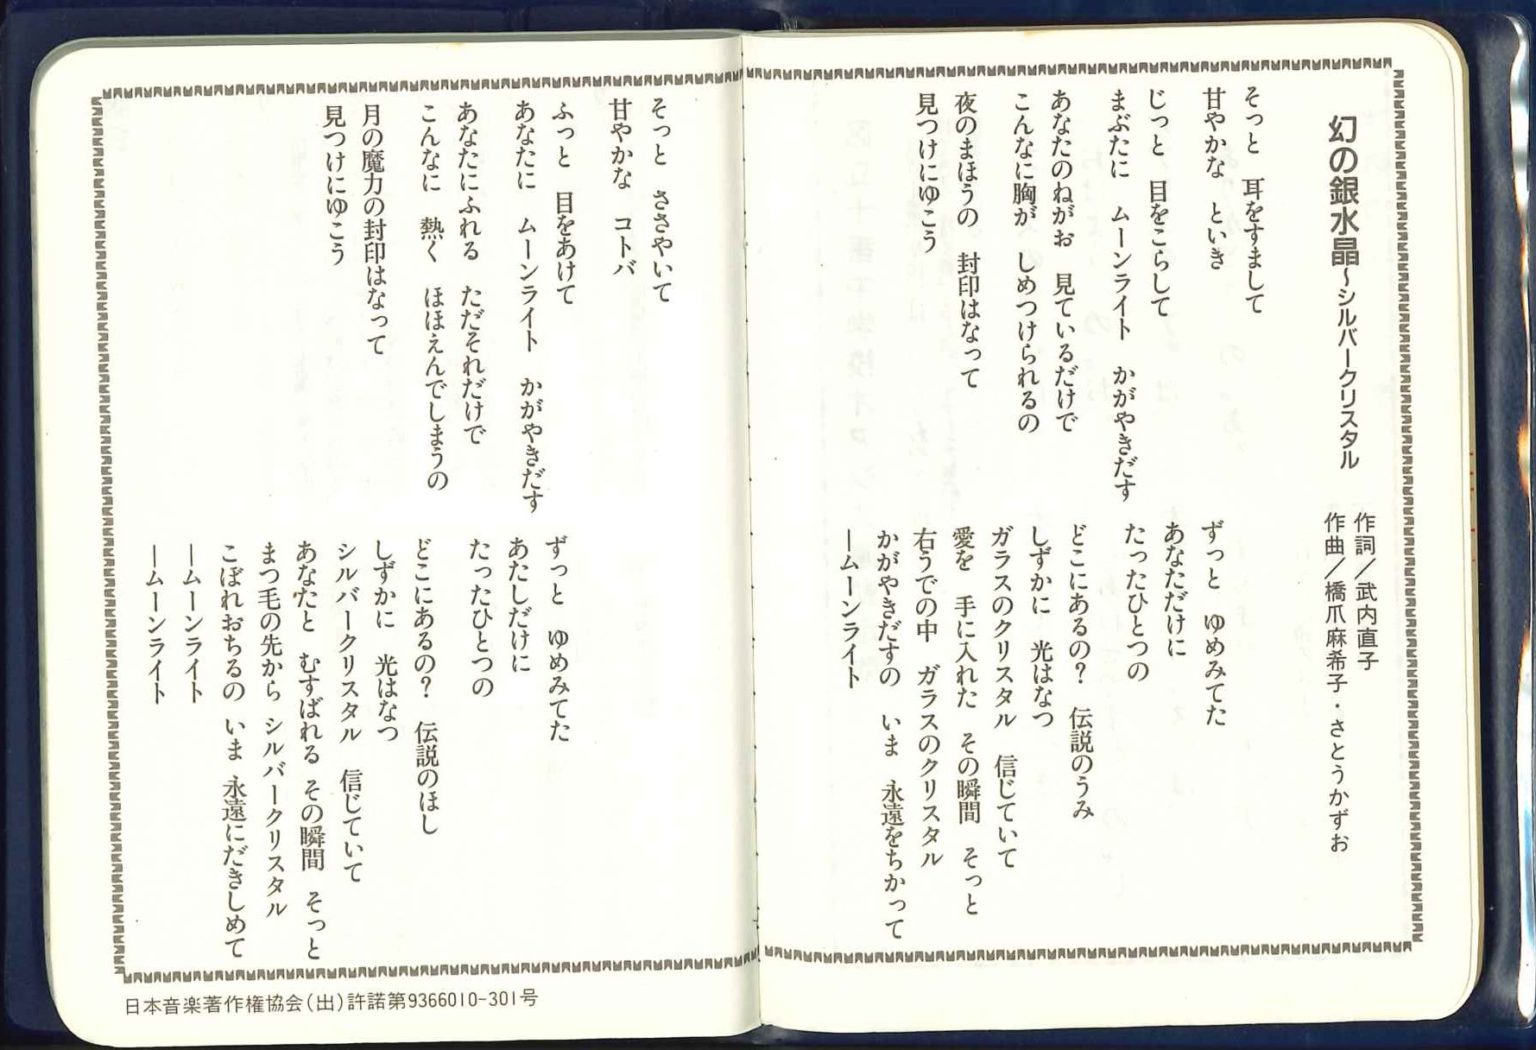 幻の銀水晶〜シルバークリスタル
作詞／武内直子
作曲／橋爪麻希子・さとうかずお
そっと　耳をすまして
甘やかな　といき
じっと　目をこらして
まぶたに　ムーンライト　かがやきだす
あなたのねがお　見ているだけで
こんなに胸が　しめつけられるの
夜のまほうの　封印はなって
見つけにゆこう
ずっと　ゆめみてた
あなただけに
たったひとつの
どこにあるの？　伝説のうみ
しずかに　光はなつ
ガラスのクリスタル　信じていて
愛を　手に入れた　その瞬間　そっと
右うでの中　ガラスのクリスタル
かがやきだすの　いま　永遠をちかって
―ムーンライト
そっと　ささやいて
甘やかな　コトバ
ふっと　目をあけて
あなたに　ムーンライト　かがやきだす
あなたにふれる　ただそれだけで
こんなに　熱く　ほほえんでしまうの
月の魔力の封印はなって
見つけにゆこう
ずっと　ゆめみてた
あたしだけに
たったひとつの
どこにあるの？　伝説のほし
しずかに　光はなつ
シルバークリスタル　信じていて
あなたと　むすばれる　その瞬間　そっと
まつ毛の先から　シルバークリスタル
こぼれおちるの　いま　永遠にだきしめて
―ムーンライト
―ムーンライト
日本音楽著作権協会(出)許諾第9366010-301号